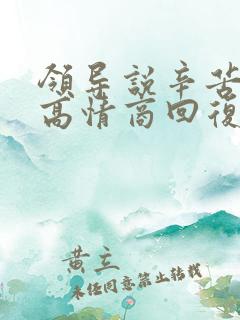 領导說辛苦
高情商回復
黄立
未经同意禁止转载